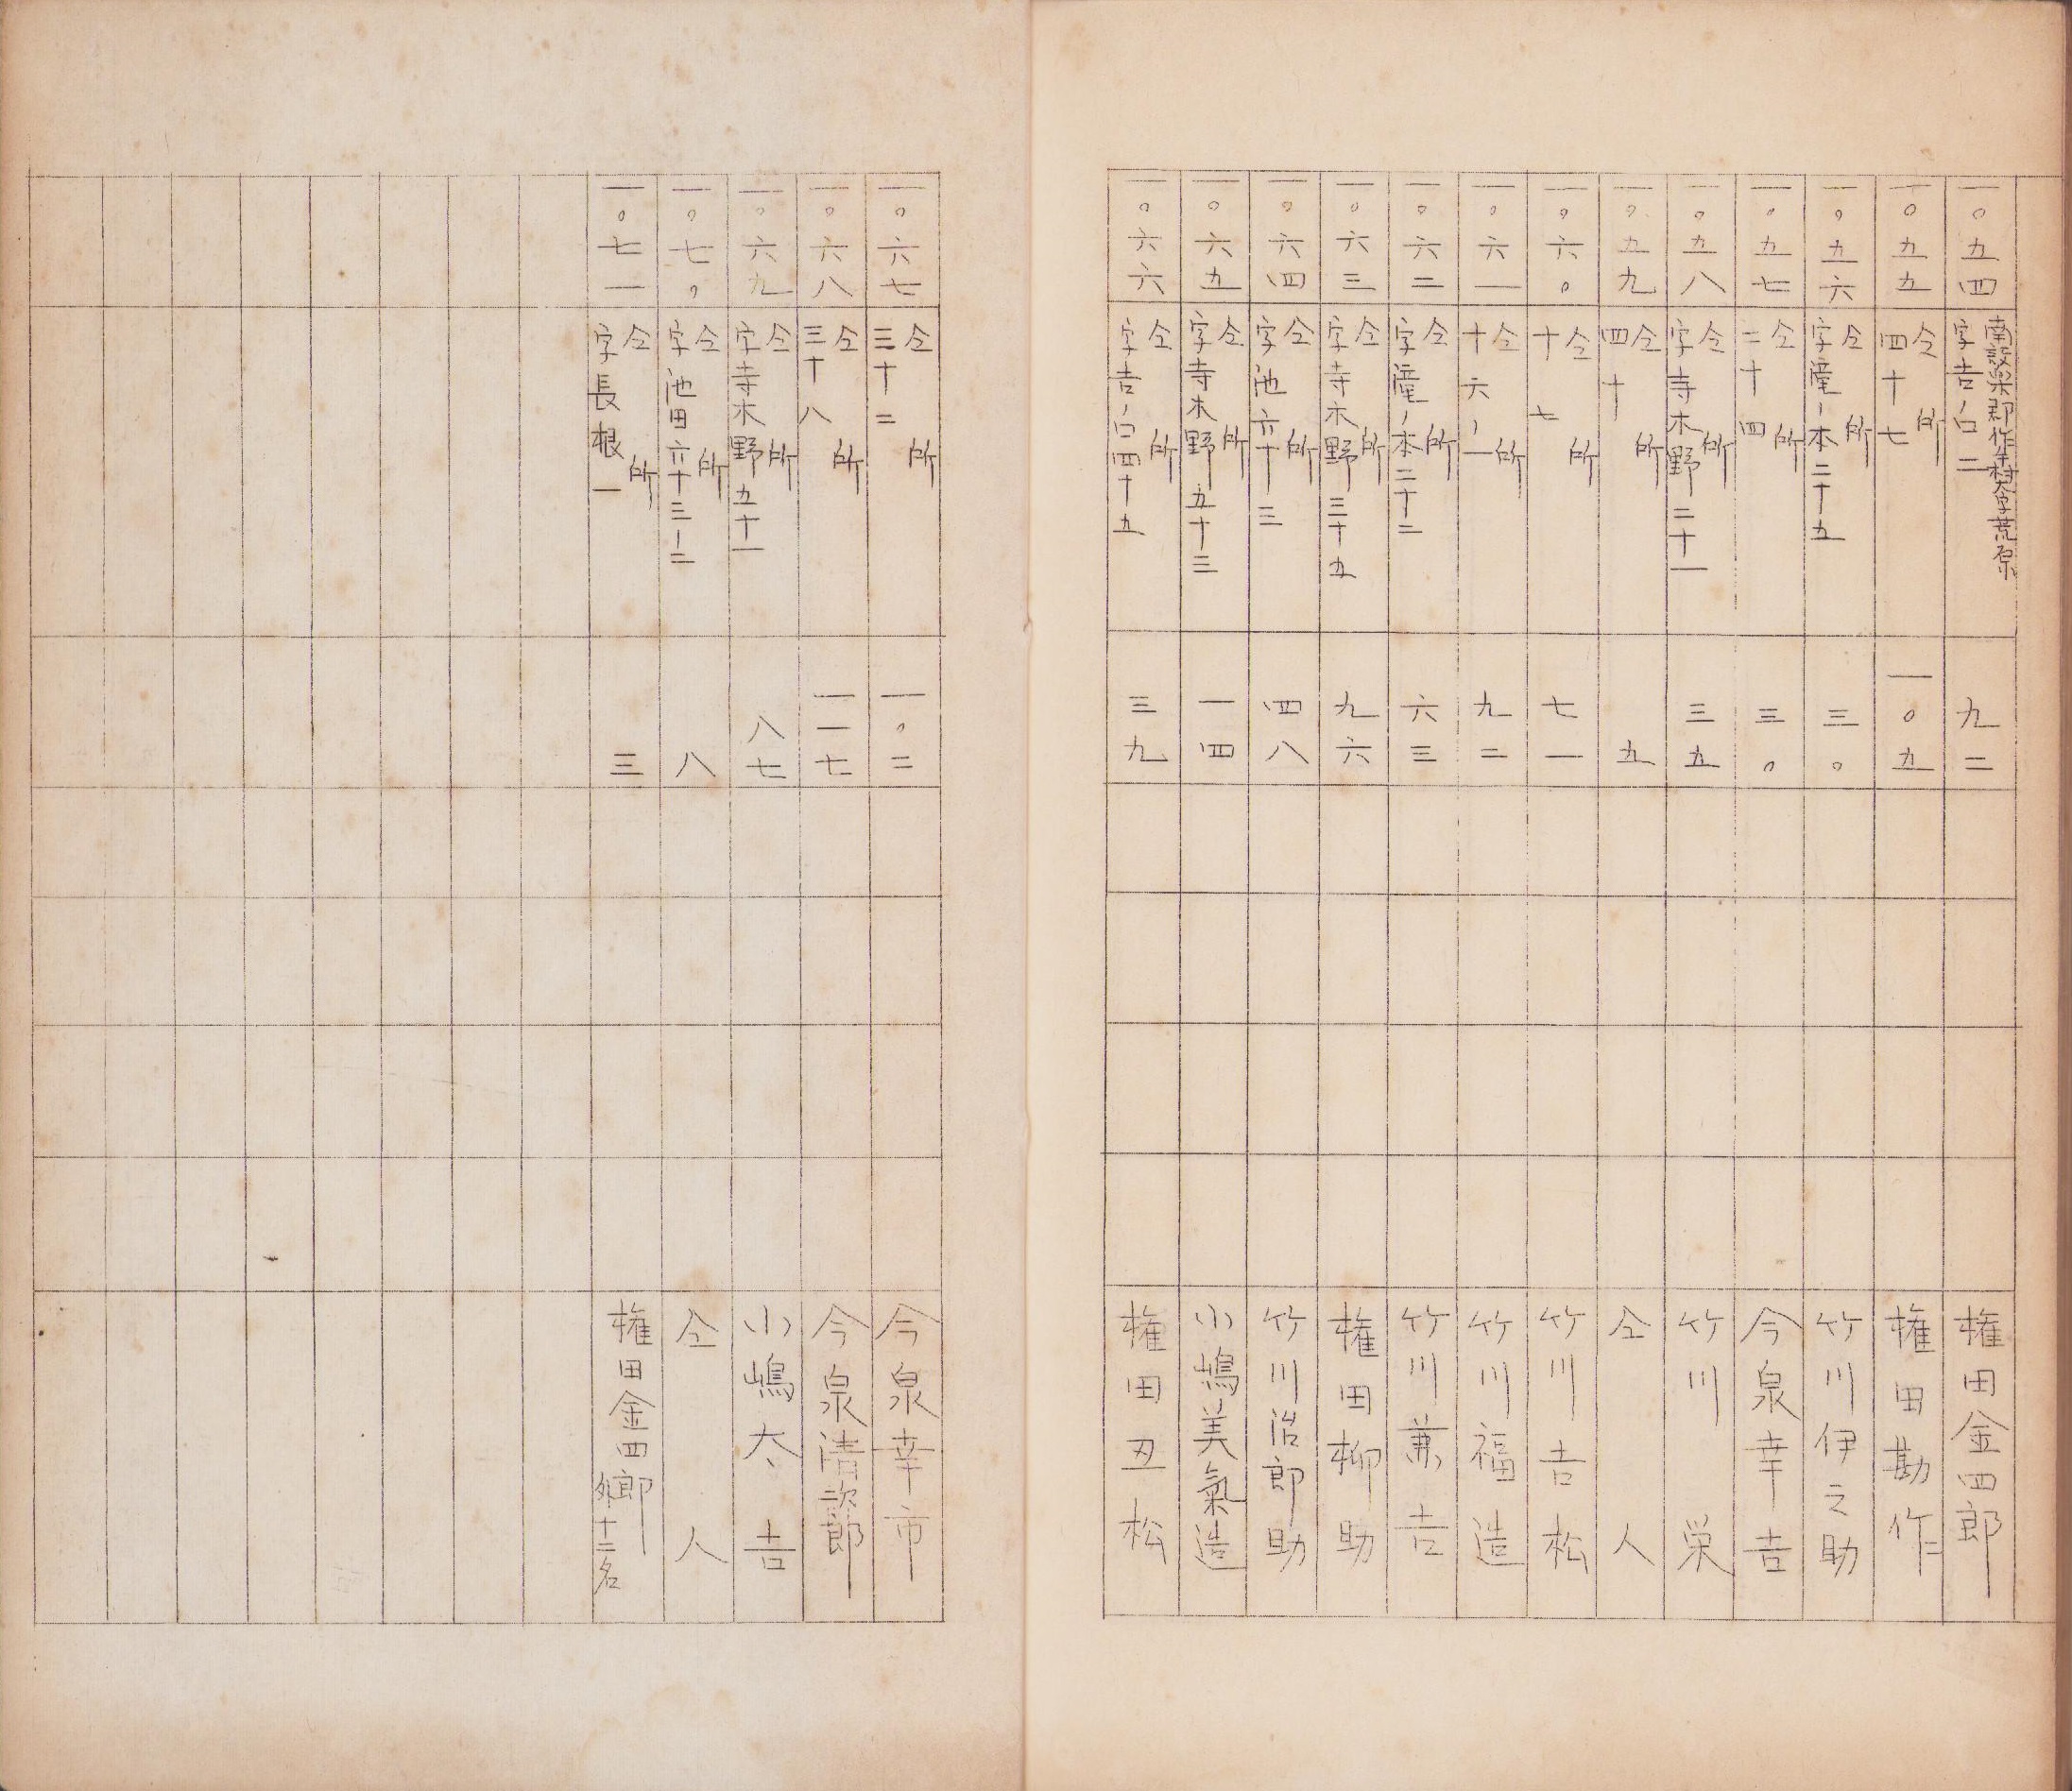 一〇五四 南設楽郡作手村大字荒原 字吉ノ白二 九二 権田金四郎
一〇五五 仝所 四十七 一〇九 権田勘作
一〇五六 仝所 字滝ノ本二十五 三〇 竹川伊之助
一〇五七 仝所 二十四 三〇 今泉幸吉
一〇五八 仝所 字寺木野二十一 三五 竹川栄
一〇五九 仝所 四十 九 仝人
一〇六〇 仝所 十七 七一 竹川吉松
一〇六一 仝所 十六ノ一 九二 竹川福造
一〇六二 仝所 字滝ノ本二十二 六三 竹川兼吉
一〇六三 仝所 字寺木野三十五 九六 権田柳助
一〇六四 仝所 字池 六十三 四八 竹川治郎助
一〇六五 仝所 字寺木野五十三 一四 小嶋美氣造
一〇六六 仝所 字吉ノ白四十五 三九 権田丑松
一〇六七 仝所 三十二 一〇二 今泉幸市
一〇六八 仝所 三十八 一一七 今泉清次郎
一〇六九 仝所 字寺木野五十一 八七 小嶋太吉
一〇七〇 仝所 字池田六十三ノ二 八 仝人
一〇七一 仝所 字長根一 三 権田金四郎 外十二名